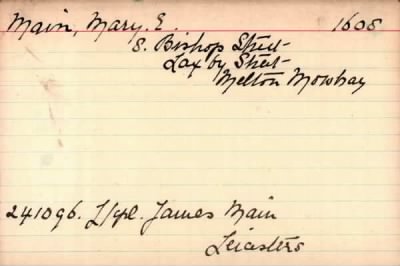 Main, Mary. E. 1608
8. Bishop Street
Sax by Street
Melton Mowbray
241096. L/Cpl. James Main
Leicesters